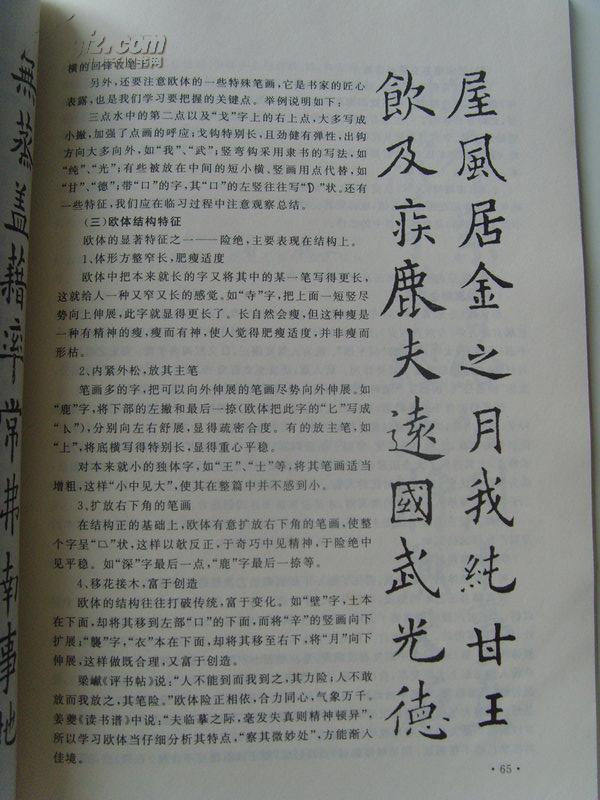 横的回锋收笔上。
另外，还要注意欧体的一些特殊笔画，它是书家的匠心
表露，也是我们学习要把握的关键点。举例说明如下：
三点水中的第二点以及“戈”字上的右上点，大多写成
小撇，加强了点画的呼应；戈钩特别长，且劲健有弹性，出钩
方向大多向外，如“我”、“武”；竖弯钩采用隶书的写法，如
“纯”、“光”；有些被放在中间的短小横、竖画用点代替，如
“甘”、“德”；带“口”的字，其“口”的左竖往往写“ ”状。还有
一些特征，我们应在临习过程中注意观察总结。
(三)欧体结构特征
欧体的显著特征之一——险绝，主要表现在结构上。
1、体形方整窄长，肥瘦适度
欧体中把本来就长的字又将其中的某一笔写得更长，
这就给人一种又窄又长的感觉。如“寺”字，把上面一短竖尽
势向上伸展，此字就显得更长了。长自然会瘦，但这种瘦是
一种有精神的瘦，瘦而有神，使人觉得肥瘦适度，并非瘦而
形枯。
2、内紧外松，放其主笔
笔画多的字，把可以向外伸展的笔画尽势向外伸展。如
“鹿”字，将下部的左撇和最后一捺(欧体把此字的“匕”写成
“ ”)，分别向左右舒展，显得疏密合度。有的放主笔，如
“上”，将底横写得特别长，显得重心平稳。
对本来就小的独体字，如“王”、“士”等，将其笔画适当
增粗，这样“小中见大”，使其在整篇中并不感到小。
3、扩放右下角的笔画
在结构正的基础上，欧体有意扩放右下角的笔画，使整
个字呈“ ”状，这样以欹反正，于奇巧中见精神，于险绝中
见平稳。如“深”字最后一点，“鹿”字最后一捺等。
4、移花接木，富于创造
欧体的结构往往打破传统，富于变化。如“壁”字，土本
在下面，却将其移到左部“口”的下面，而将“辛”的竖画向下
扩展；“龑”字，“衣”本在下面，却将其移至右下，将“月”向下
伸展，这样做既合理，又富于创造。
梁巘《评书帖》说：“人不能到而我到之，其力险；人不敢
放而我放之，其笔险。”欧体险正相依，合力同心，气象万千。
姜夔《读书谱》中说：“夫临摹之际，毫发失真则精神顿异”，
所以学习欧体当仔细分析其特点，“察其微妙处”，方能渐入
佳境。
屋風居金之月我純甘王
飲及疾鹿夫遠國武光德
無蒸蓋藉率常弗南事地
·65·